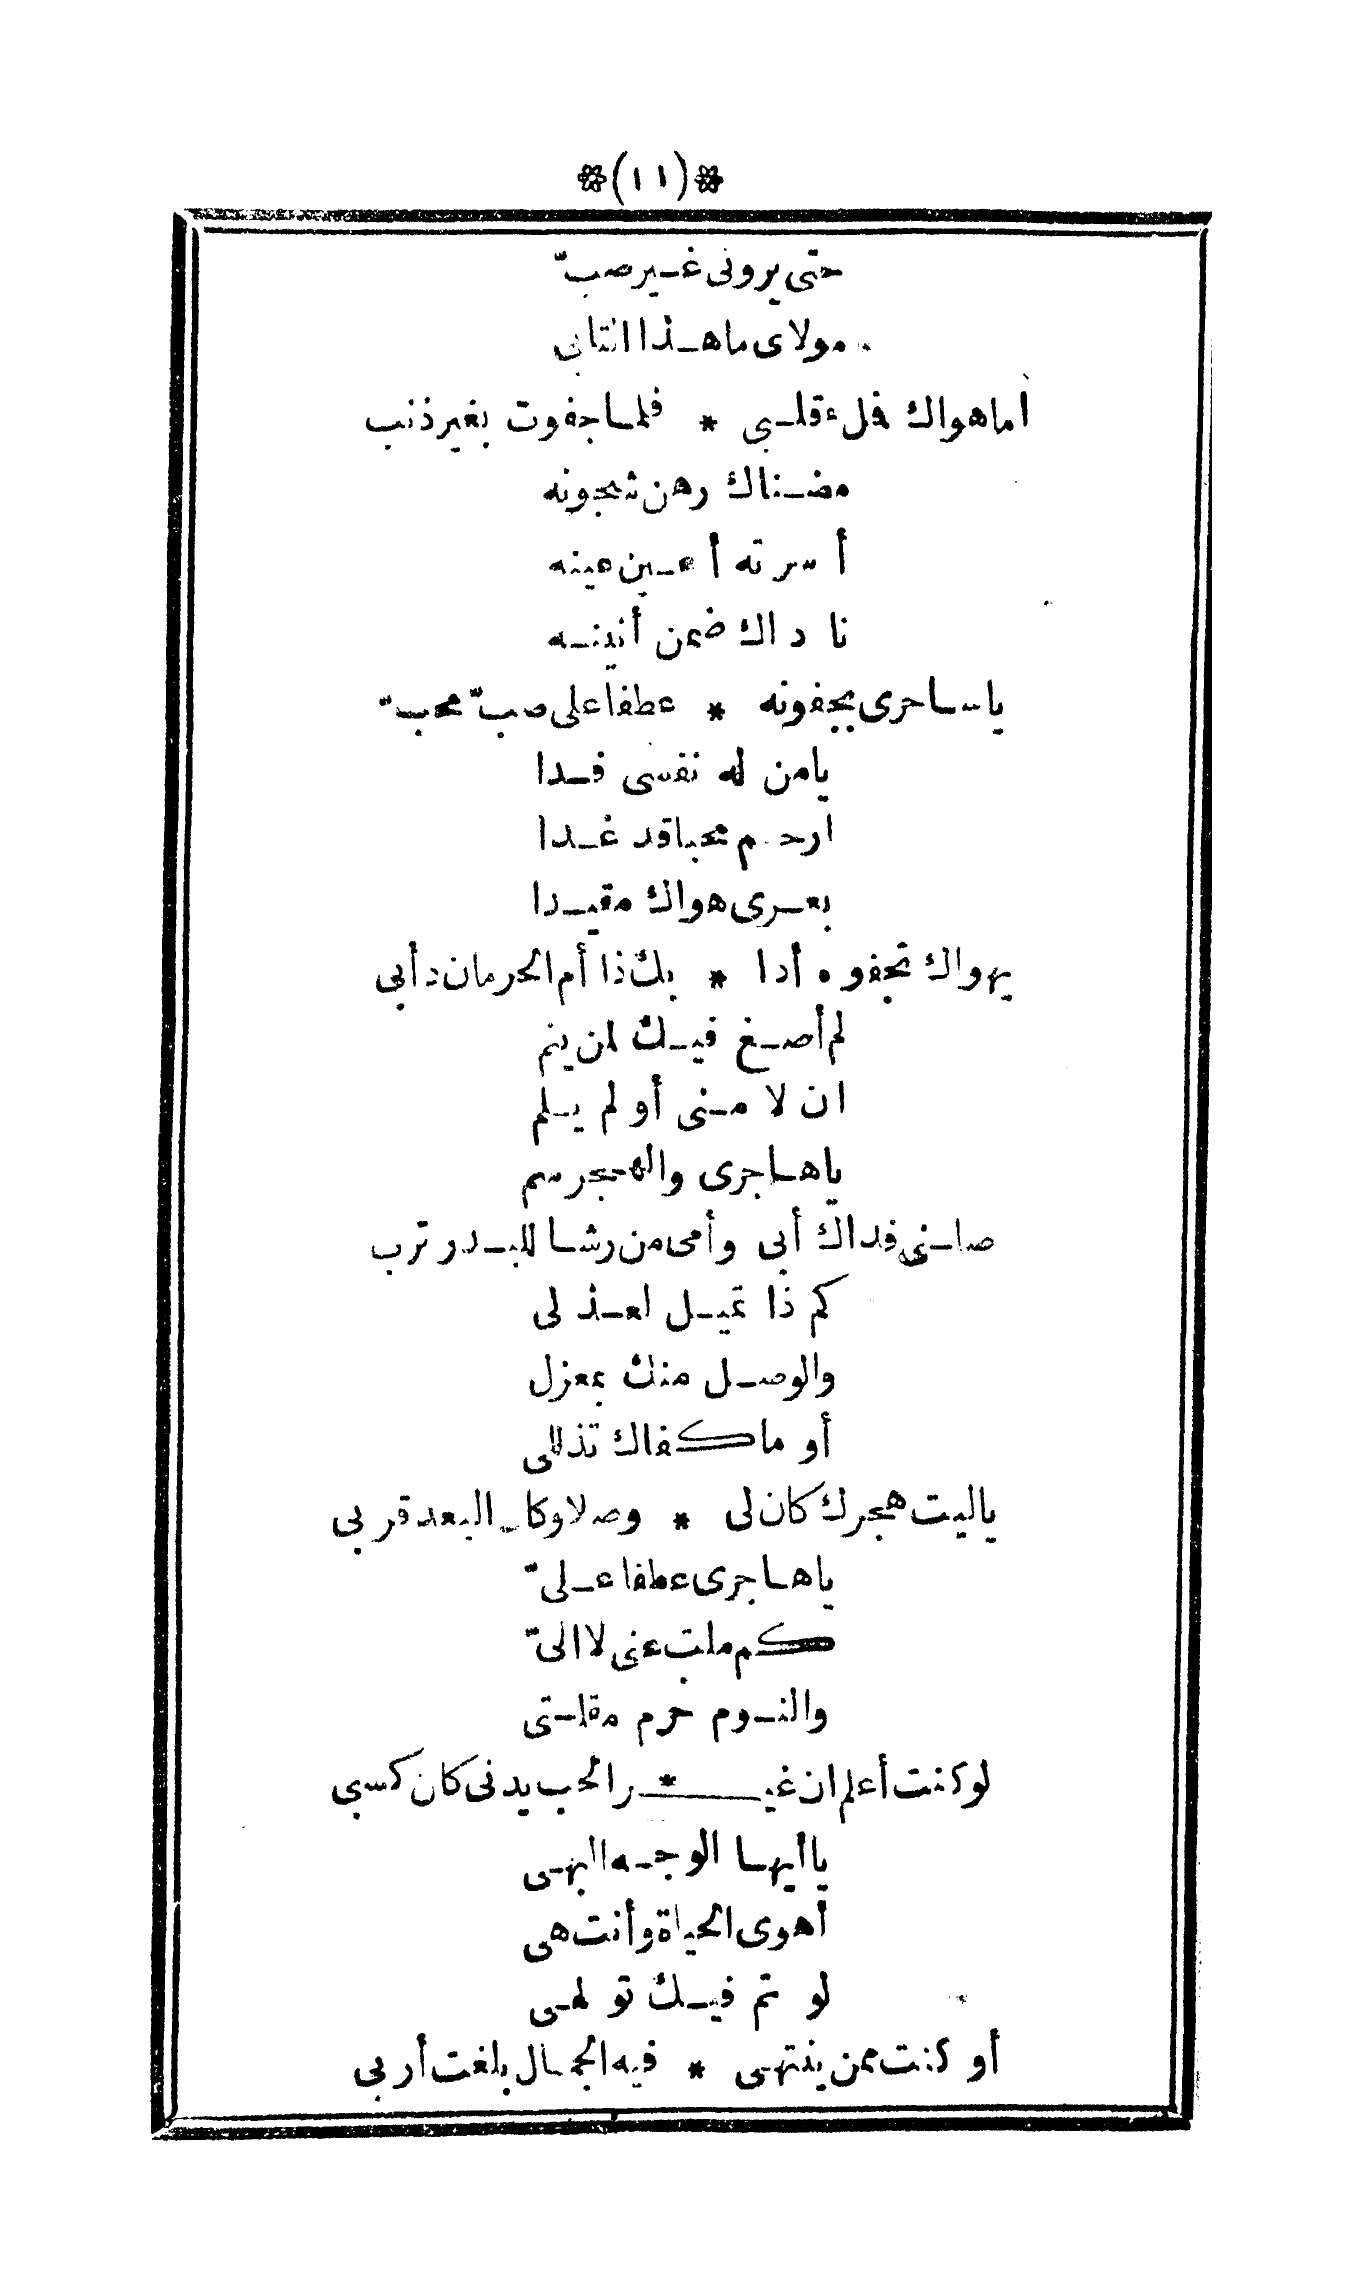 *(١١)*
حتى يرونى غير صبّ
مولاى ما هذا التابى
أما هواك فلء قلبى * فلما جفوت بغير ذنب
مضناك رهن شجونه
أسرته أعين عينه
ناداك ضمن أنينه
يا ساحرى بجفونه * عطفا على صبّ محبّ
يا من له نفسى فدا
ارحم محبا قد غدا
بعرى هواك مقيدا
يهواك تجفوه أدا * بك ذا أم الحرمان دأبى
لم أصغ فيك لمن ينم
ان لامنى أو لم يلم
يا هاجرى والهجر سم
صلنى فداك أبى وأمى من رشا للبدر ترب
كم ذا تميل لعذلى
والوصل منك بمعزل
أو ما كفاك تذللى
يا ليت هجرك كان لى * وصلا وكان البعد قربى
يا هاجرى عطفا علىّ
كم ملت عنى لا الىّ
والنوم حرم مقلتى
لو كنت أعلم ان غيـ * ـر الحب يدنى كان كسبى
يا أيها الوجه البهى
أهوى الحياة وأنت هى
لو تم فيك تولهى
أو كنت ممن ينتهى * فيه الجمال بلغت أربى